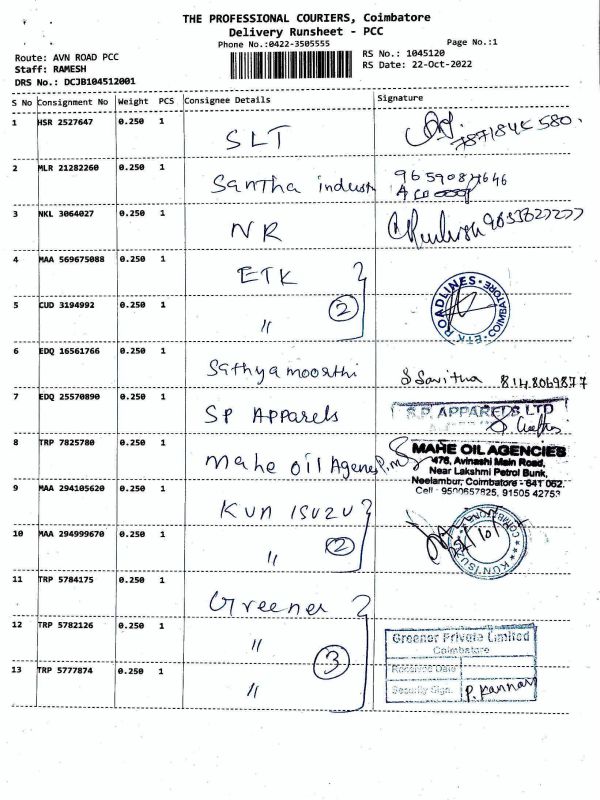 THE PROFESSIONAL COURIERS, Coimbatore
Delivery Runsheet - PCC
Phone No.:0422-3505555
Page No.:1
Route: AVN ROAD PCC
Staff: RAMESH
DRS No.: DCJB104512001
RS No.: 1045120
RS Date: 22-Oct-2022
S No Consignment No Weight PCS Consignee Details Signature
1 HSR 2527647 0.250 1 SLT
2 MLR 21282260 0.250 1 Santha
3 NKL 3064027 0.250 1 NR
4 MAA 569675088 0.250 1 ETK
ETK ROADLINES COIMBATORE
5 CUD 3194992 0.250 1 " 2
6 EDQ 16561766 0.250 1 Sathyamoorthi S Savitha 8148069877
7 EDQ 25570890 0.250 1 SP Apparels S.P. APPARELS LTD
8 TRP 7825780 0.250 1 Mahe Oil MAHE OIL AGENCIES
476, Avinashi Main Road,
Near Lakshmi Petrol Bunk,
Neelambur, Coimbatore - 641 062.
Cell : 9500657825, 91505 42753
9 MAA 294105620 0.250 1 KUN ISUZU
10 MAA 294999670 0.250 1 " 2
11 TRP 5784175 0.250 1 Greener
12 TRP 5782126 0.250 1 " Greener Private Limited
Coimbatore
3
Received Date
13 TRP 5777874 0.250 1 " Security Sign. P. Kannan